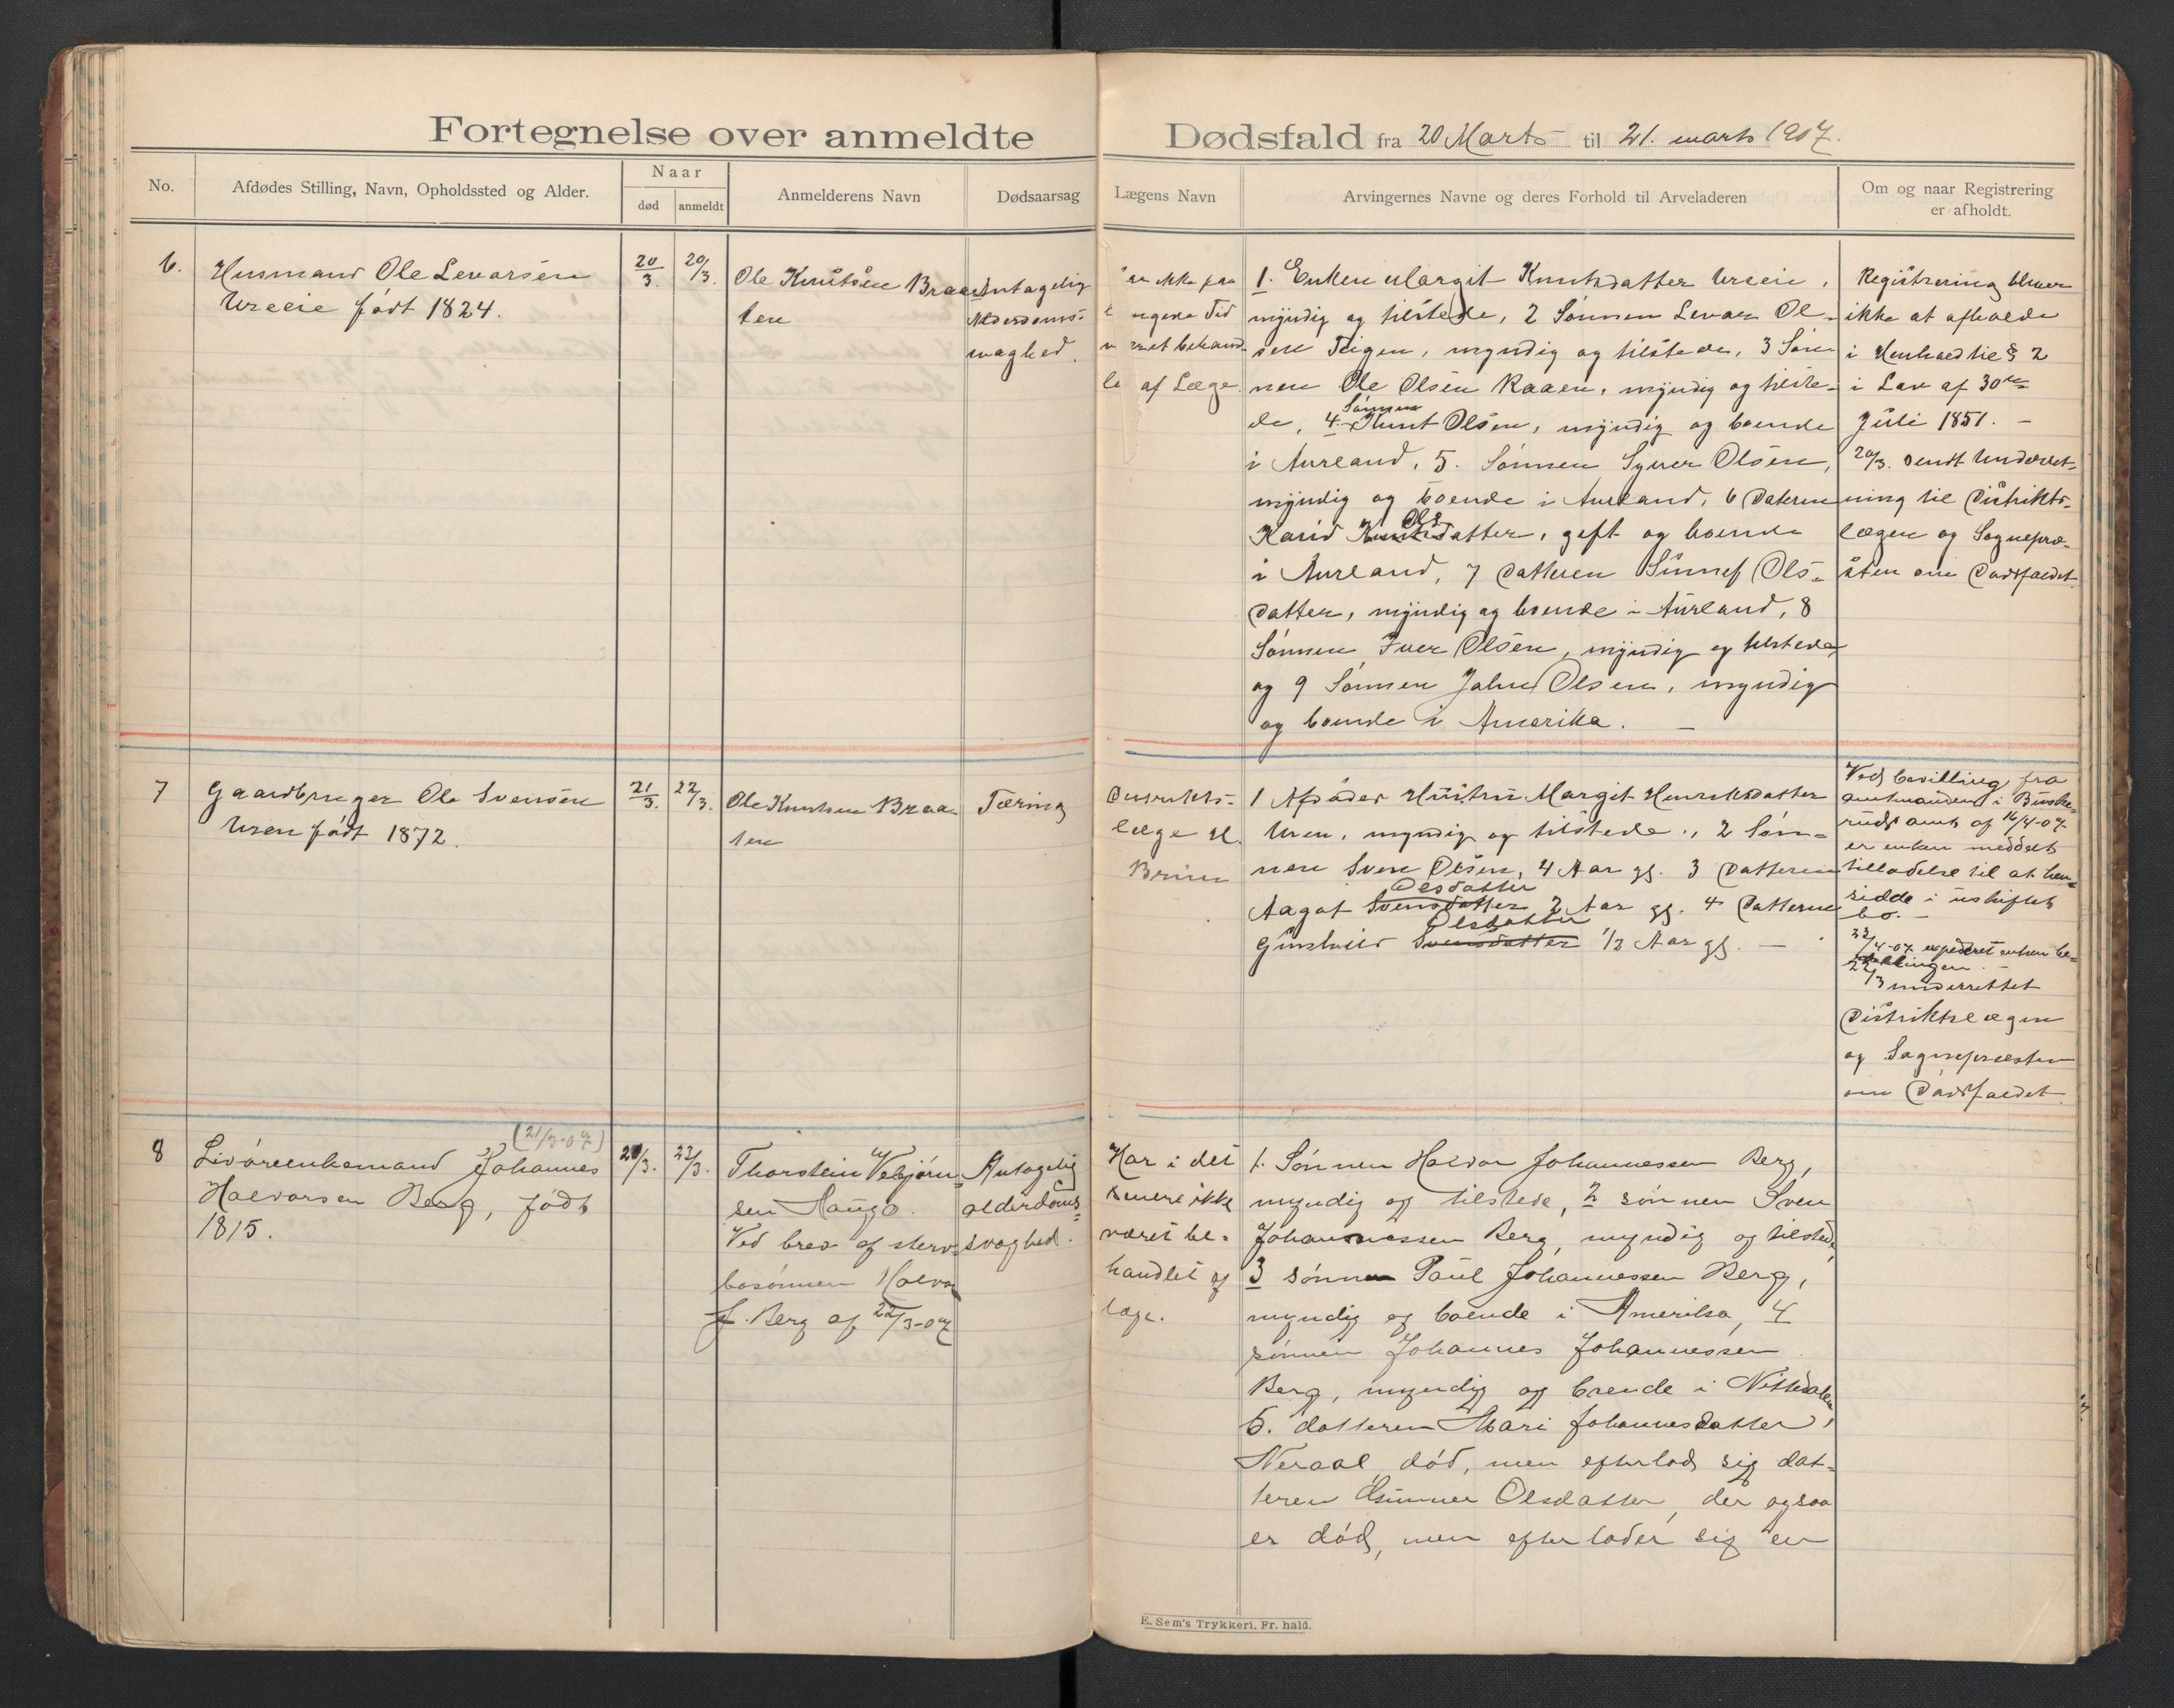 Fortegnelse over anmeldte Dødsfald fra 20 Marts til 21. marts 1907.
No.
Afdødes Stilling, Navn, Opholdssted og Alder.
Naar
død
anmeldt
Anmelderens Navn
Dødsaarsag
Lægens Navn
Arvingernes Navne og deres Forhold til Arveladeren
Om og naar Registrering
er afholdt.
6.
Husmand Ole Levorsen
Ureeie født 1824.
20/3.
20/3.
Ole Knutsen Braa
ten
Antagelig
Alderdoms-
svaghed.
ikke paa
Tid
behand-
af Læge.
1. Enken Margit Knutsdatter Ureeie,
myndig og tilstede, 2 Sønnen Levor Ol-
sen Teigen, myndig og tilstede, 3 Søn
nen Ole Olsen Raaen, myndig og tilste-
de, 4. Sønnen Knut Olsen, myndig og boende
i Aurland, 5. Sønnen Syver Olsen,
myndig og boende i Aurland, 6 Dateren
Karid Olsdatter, gift og boende
i Aurland, 7 Datteren Sünnef Ols-
datter, myndig og boende i Aurland, 8
Sønnen Iver Olsen, myndig og tilstede
og 9 Sønnen John Olsen, myndig
og boende i Amerika. —
Registrering bliver
ikke at afholde
i Henhold til § 2
i Lov af 30te
Juli 1851. –
20/3. sendt Underret-
ning til Distrikts-
lægen og Sognepræ-
sten om Dødsfaldet.
7
Gaardbruger Ole Svensen
Uren født 1872.
21/3.
22/3.
Ole Knutsen Braa
ten
Tæring
Distrikts-
læge
Brun
1 Afdødes Hustru Margit Henriksdatter
Uren, myndig og tilstede., 2 Søn-
nen Sven Olsen, 4 Aar gl. 3 Datteren
Olsdatter
Aagot Svensdatter 2 Aar gl. 4 Datteren
Olsdatter
Gunhild Svensdatter 1/2 Aar gl. —
Ved bevilling fra
amtmanden i Buske-
ruds amt af 16/4-07
er enken meddelt
tilladelse til at hen-
sidde i uskiftet
bo. –
22/4-07 expederet enken be-
villingen. –
22/3 underrettet
Distriktslægen
og Sognepræsten
om Dødsfaldet.
8
(21/3-07)
Livøreenkemand Johannes
Halvorsen Berg, født
1815.
20/3.
22/3.
Thorstein Vebjørn-
sen Haugo.
Ved brev af sterv-
bosønnen Halvor
J. Berg af 22/3-07
Antagelig
alderdoms-
svaghed.
Har i det
senere ikke
været be-
handlet af
læge.
1. Sønnen Halvor Johannessen Berg,
myndig og tilstede, 2 sønnen Sven
Johannessen Berg, myndig og tilstede,
3 sønnen Paul Johannessen Berg,
myndig og boende i Amerika, 4
sønnen Johannes Johannessen
Berg, myndig og boende i Nittedalen,
5. datteren Mari Johannesdatter
Neraal død, men efterlod sig dat-
teren Gunner Olsdatter, der ogsaa
er død, men efterlader sig en
E. Sem's Trykkeri, Fr.hald.